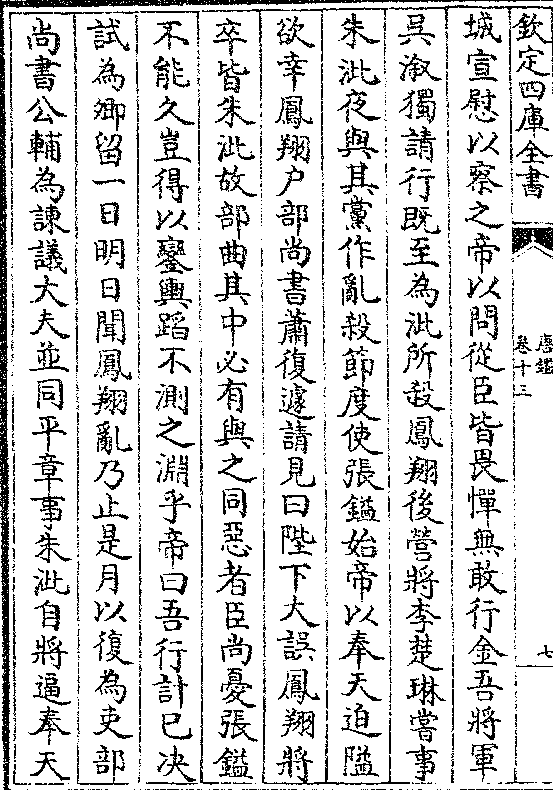 欽定四庫全書
唐鑑
卷十三
七
城宣慰以察之帝以問從臣皆畏憚無敢行金吾將軍
吳溆獨請行既至為泚所殺鳳翔後營將李楚琳嘗事
朱泚夜與其黨作亂殺節度使張鎰始帝以奉天迫隘
欲幸鳳翔户部尚書蕭復遽請見曰陛下大誤鳳翔將
卒皆朱泚故部曲其中必有與之同惡者臣尚憂張鎰
不能久豈得以鑾輿蹈不測之淵乎帝曰吾行計已决
試為卿留一日明日聞鳳翔亂乃止是月以復為吏部
尚書公輔為諫議大夫並同平章事朱泚自將逼奉天